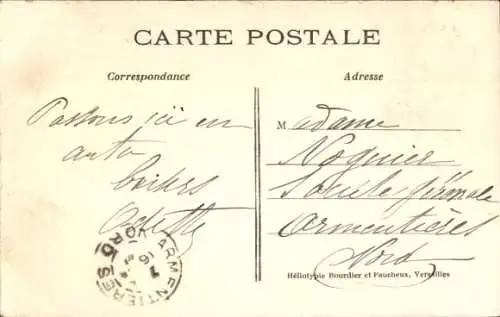 CARTE POSTALE
Correspondance
Adresse
Passons ici en
auto
Baisers
Madame
Noguier
Société Générale
Armentières
Nord
ARMENTIERES
NORD
Héliotypie Bourdier et Faucheux, Versailles